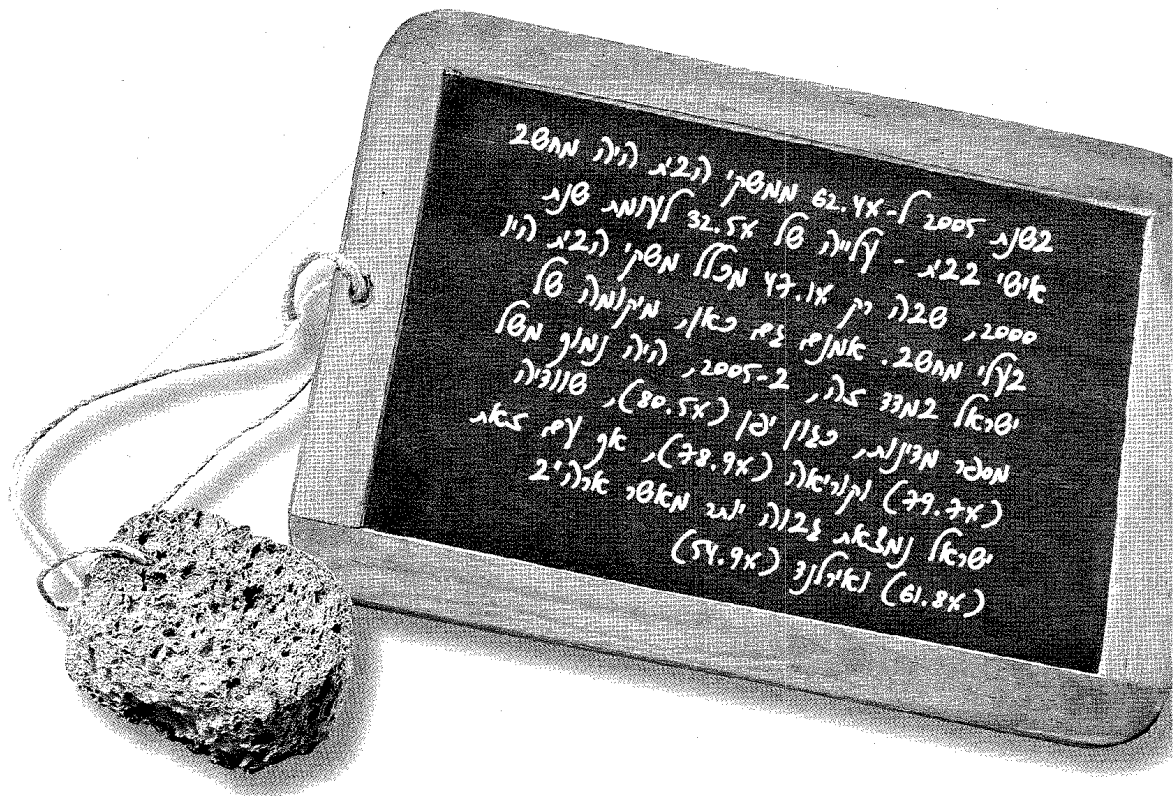 בשנת 2005 ל-62.4% ממשקי הבית היה מחשב
אישי בבית - עלייה של 32.5% לעומת שנת
2000, שבה רק 47.1% מכלל משקי הבית היו
בעלי מחשב. אמנם גם כאן, מיקומה של
ישראל במדד זה, ב-2005, היה נמוך משל
מספר מדינות, כגון יפן (80.5%), שוודיה
(79.7%) וקוריאה (78.9%), אך עם זאת
ישראל נמצאת גבוה יותר מאשר ארה"ב
(61.8%) ואירלנד (54.9%)